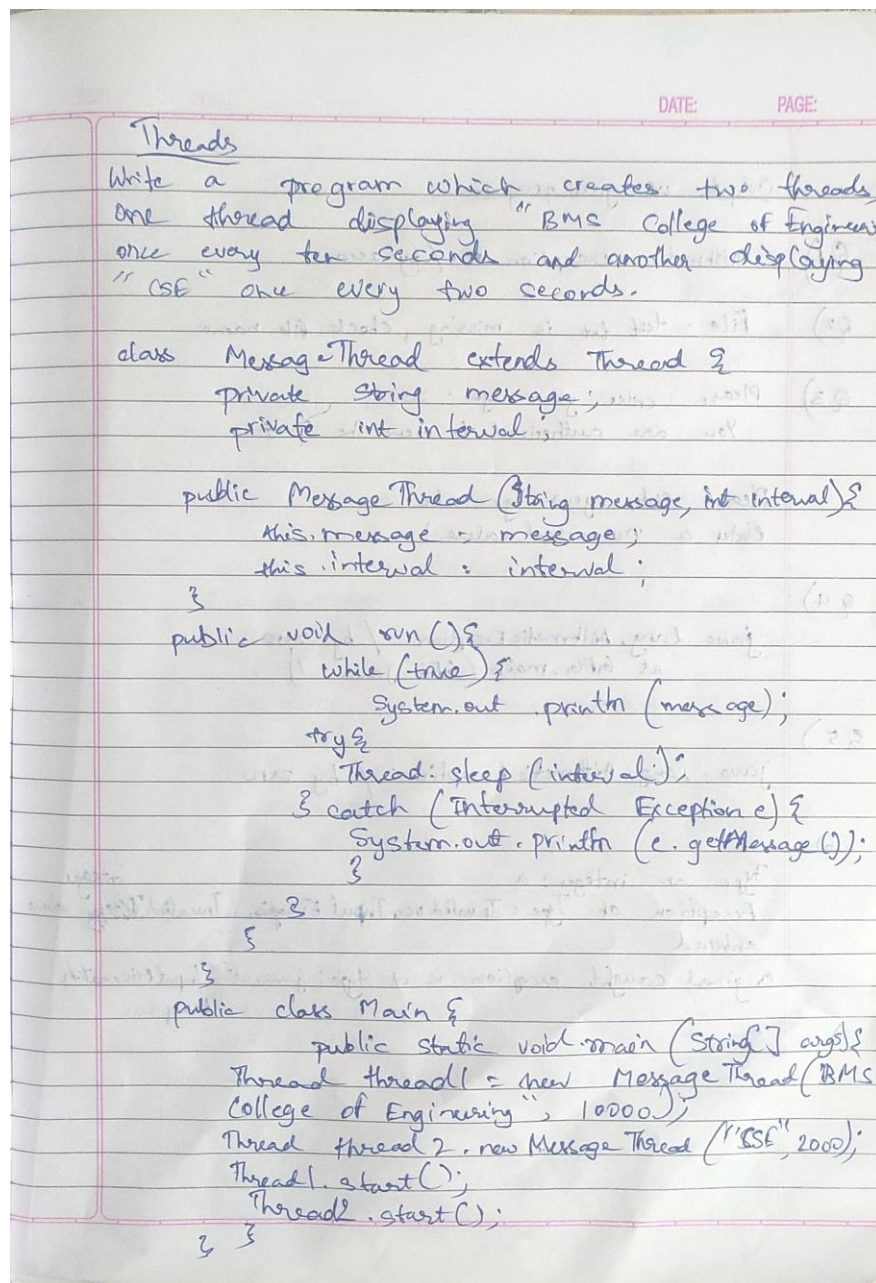 DATE: PAGE:
Threads
Write a program which creates two threads,
one thread displaying "BMS College of Engineer
once every ten seconds and another displaying
"CSE" once every two seconds.
class MessageThread extends Thread {
private String message;
private int interval;
public MessageThread (String message, int interval){
this.message = message;
this.interval = interval;
}
public void run (){
while (true) {
System.out.println (message);
try{
Thread.sleep (interval);
} catch (Interrupted Exception e) {
System.out.println (e.getMessage());
}
}
{
}
public class Main {
public static void main (String[] args){
Thread thread1 = new MessageThread("BMS
College of Engineering", 10000);
Thread thread2 = new MessageThread ("CSE", 2000);
Thread1.start();
Thread2.start();
} }